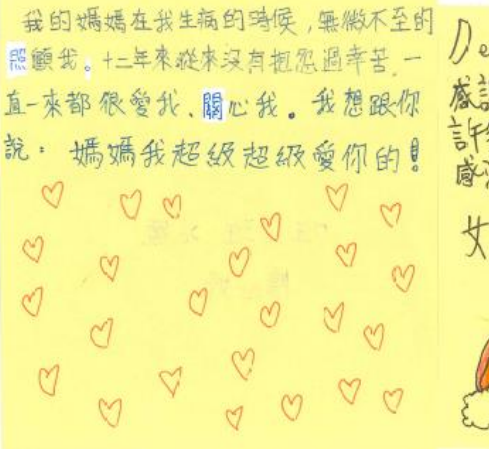 我的媽媽在我生病的時候，無微不至的
照顧我。十二年來從來沒有抱怨過辛苦，一
直一來都很愛我、關心我。我想跟你
說：媽媽我超級超級愛你的！
De
感謝
許
感
女